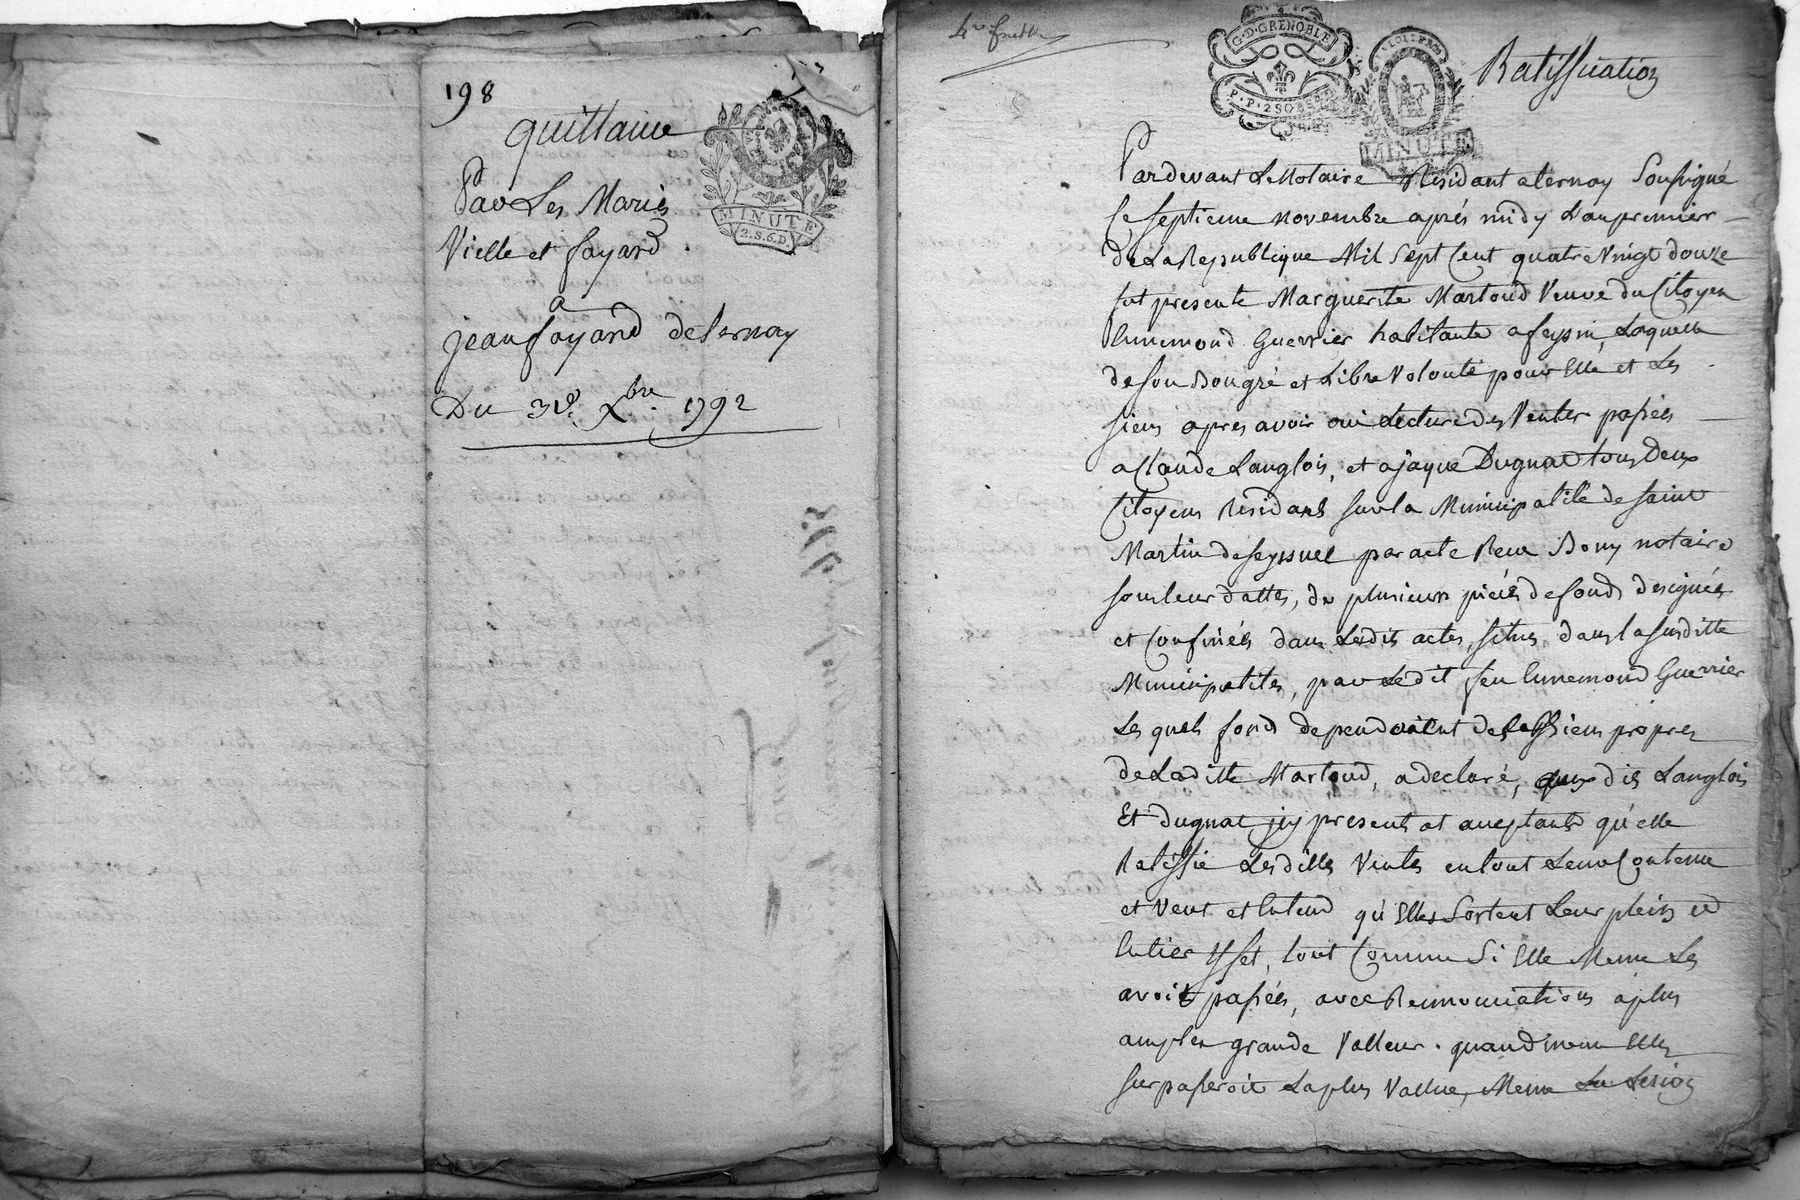 198
quittance
Par Les Mariés
Vielle et fayard
a
jean fayard de ternay
Du 31e. Xbre. 1792
MINUTE
2.S.6.D.
G.D.GRENOBLE
MINUTE
Ratiffication
Pardevant Le Notaire Residant a ternay Soussigné
Ce septieme novembre aprés midy L'an premier
de La Republique Mil Sept Cent quatre Vingt douze
fut presente Marguerite Martoud Veuve du Citoyen
Ennemond Guerrier habitante a feysin, Laquelle
de son Bongré et Libre Volonté pour Elle et Les
siens apres avoir oui Lecture des Ventes passées
a Claude Langlois, et a jaque Dugnat tous Deux
Citoyens Residants sur la Municipalité de saint
Martin de seyssuel par acte Recu Bony notaire
sous leur dattes, de plusieurs piéces de fonds designées
et Confinées dans Lesdits actes, situs dans la susditte
Municipalites, par Ledit feu Ennemond Guerrier
Les quels fond dependoient des Biens propres
de Laditte Martoud, a declaré, aux dis Langlois
Et dugnat icy presents et aceptants qu'elle
Ratiffie Lesdittes Ventes en tout Leur Contenu
et Veut et Entend qu'Elles Sortent Leur plein et
Entier Effet, tout Comme Si Elle Meme Les
avoit passées, avec Rennonciations a plus
amples grande Valleur. quand meme Elles
surpasseroit La plus Vallue, Meme La Lezion